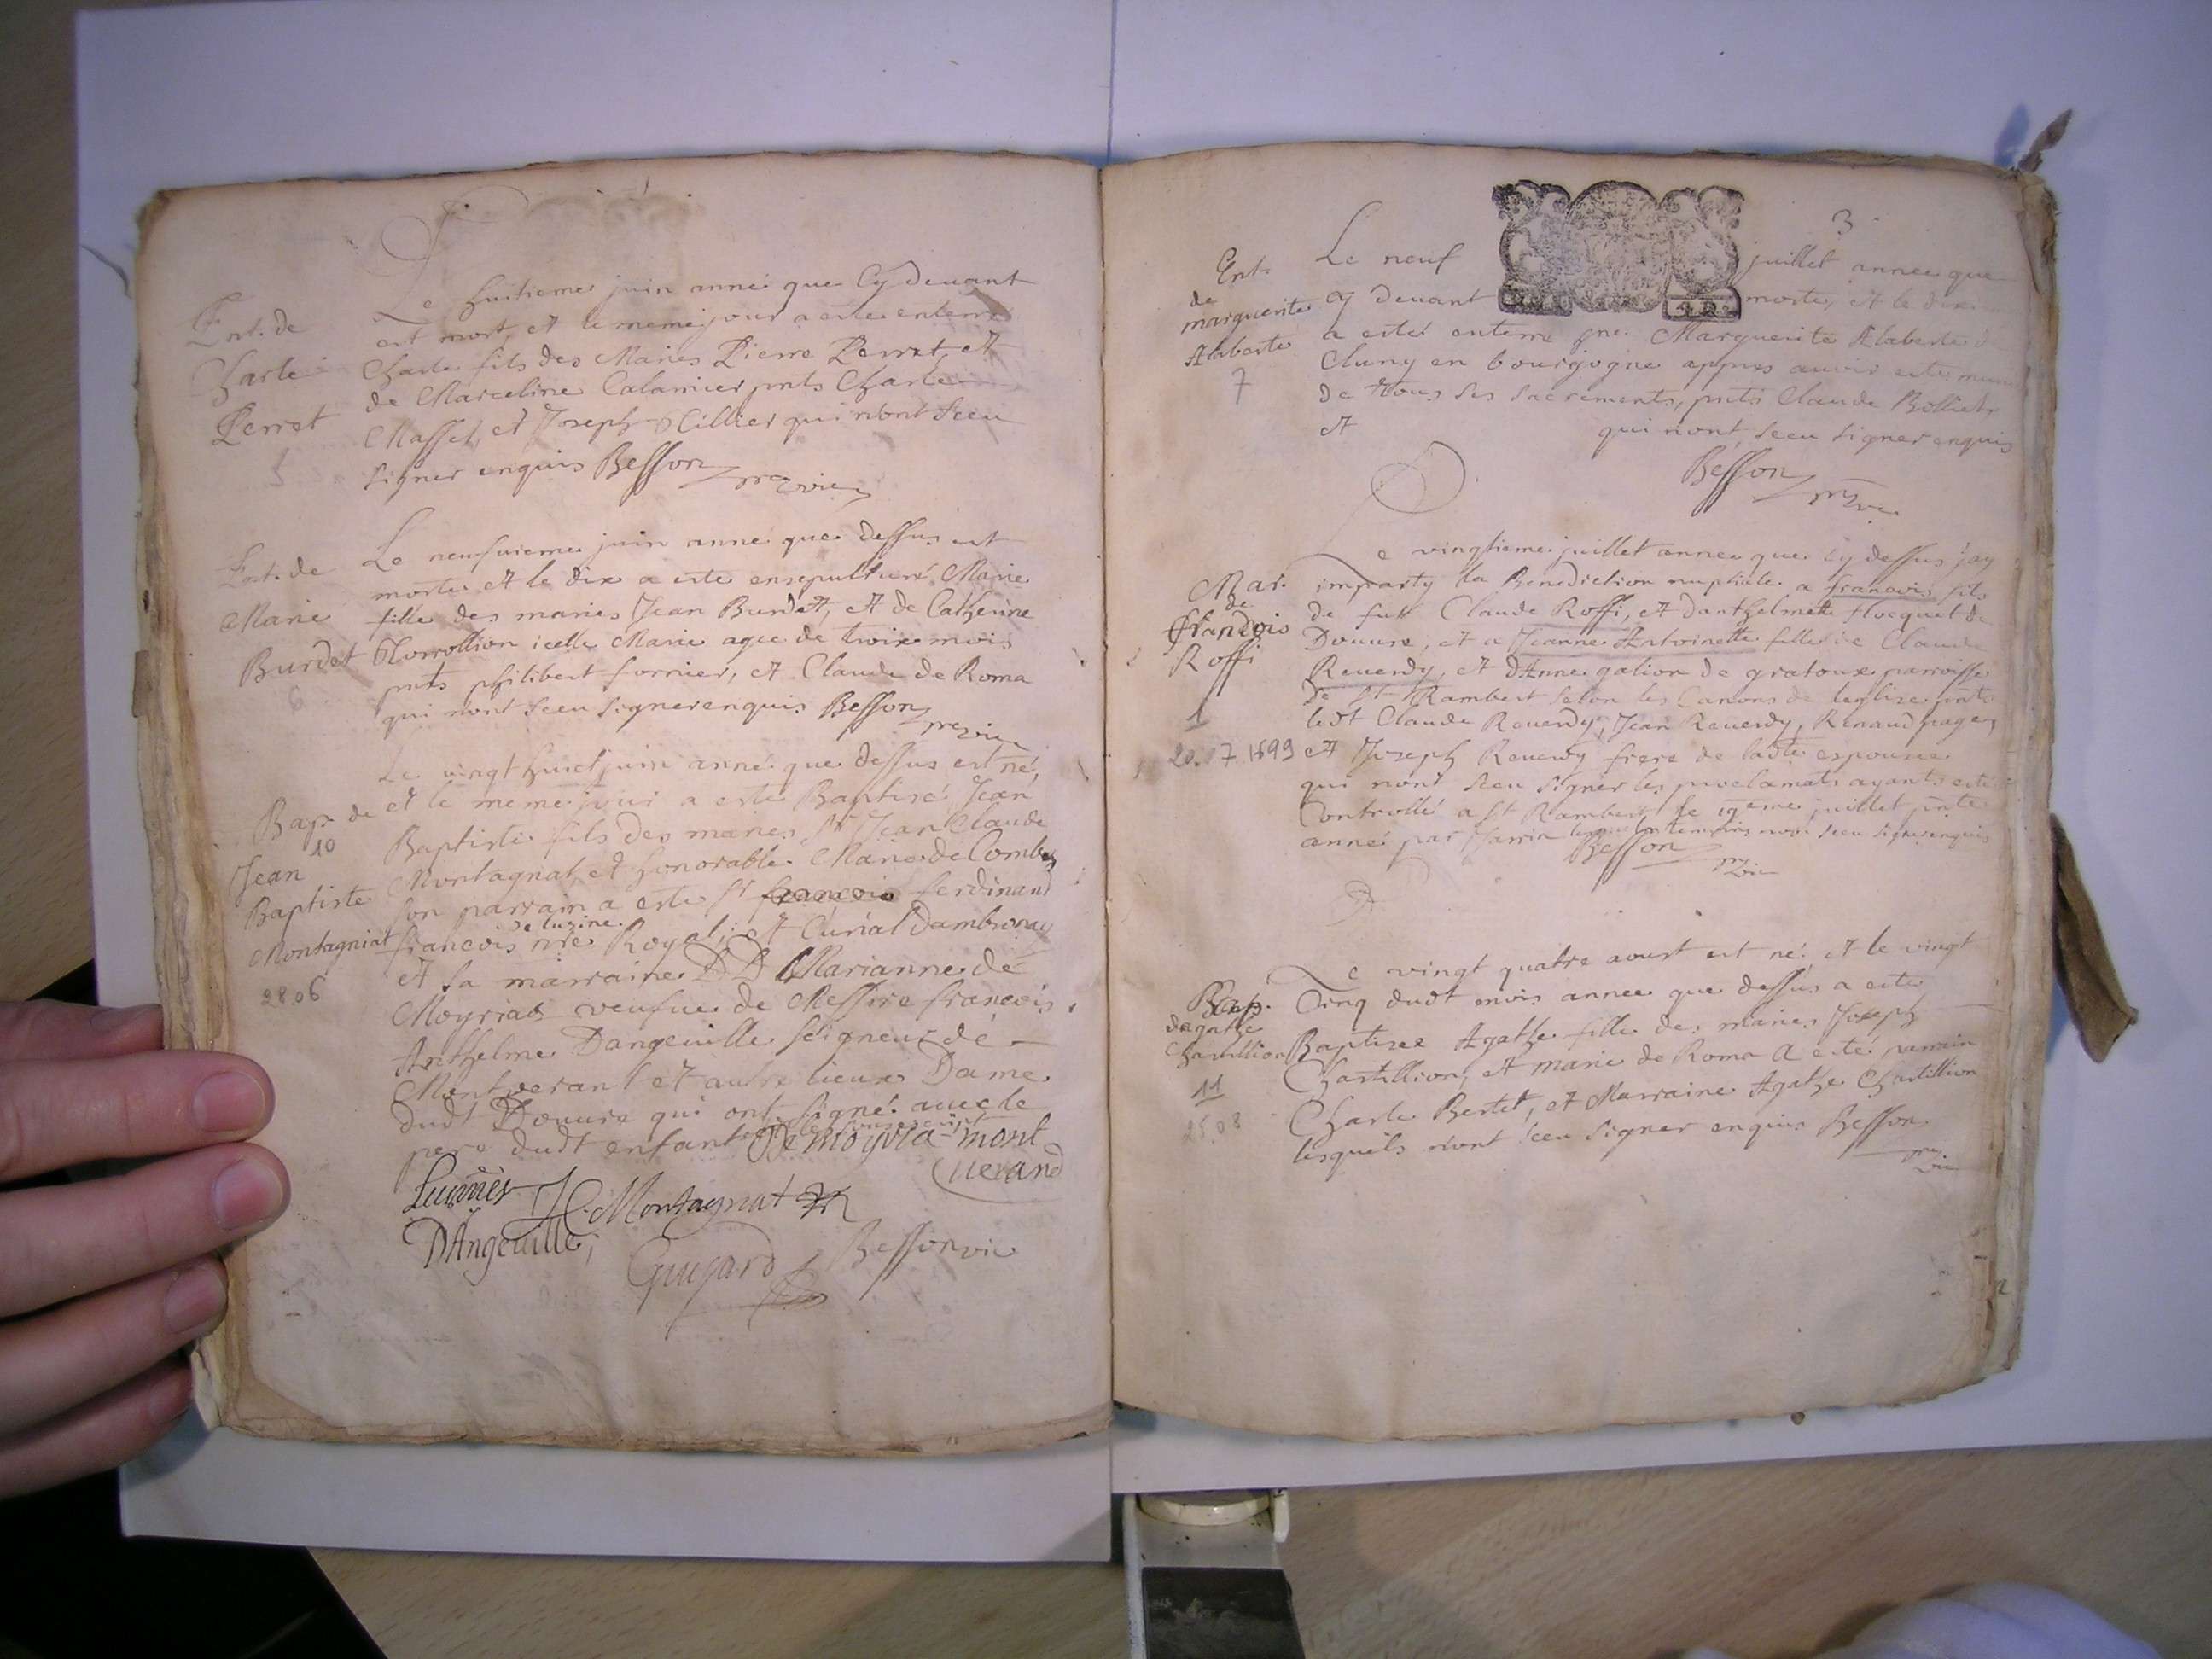 Ent. de
Charle
Perret
Le huitieme juin anné que Cy devant
est mort, et le meme jour a esté enterré
Charle fils des Maries Pierre Perret, et
de Marceline Calamier pnts Charle
Massel, et Joseph qui n'ont sceu
signer enquis Besson
Ent. de
Marie
Burdet
6
Le neufvieme juin anné que dessus est
morte et le dix a este ensepulturé Marie
fille des maries Jean Burdet, et de Catherine
icelle Marie agee de troix mois
pnts philibert fornier, et Claude de Roma
qui n'ont sceu signer enquis Besson
Bap. de
10
Jean
Baptiste
Montagniat
28.06
Le vingt huict juin anné que dessus est né,
et le meme jour a este Baptisé Jean
Baptiste fils des maries, Sr Jean Claude
Montagnat, et honorable Marie de Combes
son parrain a este Sr ferdinand
de luzine
francois nre Royal, et Curial Dambronay
et sa marraine D D Marianne de
Moyriat veufve de Messire francois
Anthelme Dangeville seigneur de
Montverant et autre lieux Dame
dudt Douvre qui ont signé avec le
pere dudt enfant De moyria mont
verand
J C Montagnat
DAngeville
Guyard Besson vic
3
Ent.
de
marguerite
Alaberte
7
Le neuf juillet annee que
cy devant morte, et le dix
a esté enterre Marguerite Alaberte
Cluny en bourgogne appres avoir este
de tous ses sacrements, pnts Claude Bolliet
et qui n'ont sceu signer enquis
Besson
Mar.
de
francois
Roffi
1
20.7.1699
Le vingtieme juillet annee que cy dessus jay
imparty la Benediction nuptiale a francois fils
de fut Claude Roffi, et danthelmette flocquet de
Douvre, et a Jeanne Antoinette fille de Claude
Reverdy, et dAnne galion de gratoux parroisse
de St Rambert selon les Canons de leglise pnts
ledt Claude Reverdy, Jean Reverdy, Renaud page
et Joseph Reverdy frere de ladte espousee
qui n'ont sceu signer les proclamats ayants esté
Controllé a St Rambert le 19eme juillet pnte
anné par
Besson
Bap.
dagathe
Chastillion
11
25.08
Le vingt quatre aoust est né et le vingt
Cinq dudt mois annee que dessus a este
Baptisee Agathe fille des maries Joseph
Chastillion, et marie de Roma a esté parrain
Charle Bertet, et Marraine Agathe Chastillion
lesquels n'ont sceu signer enquis Besson